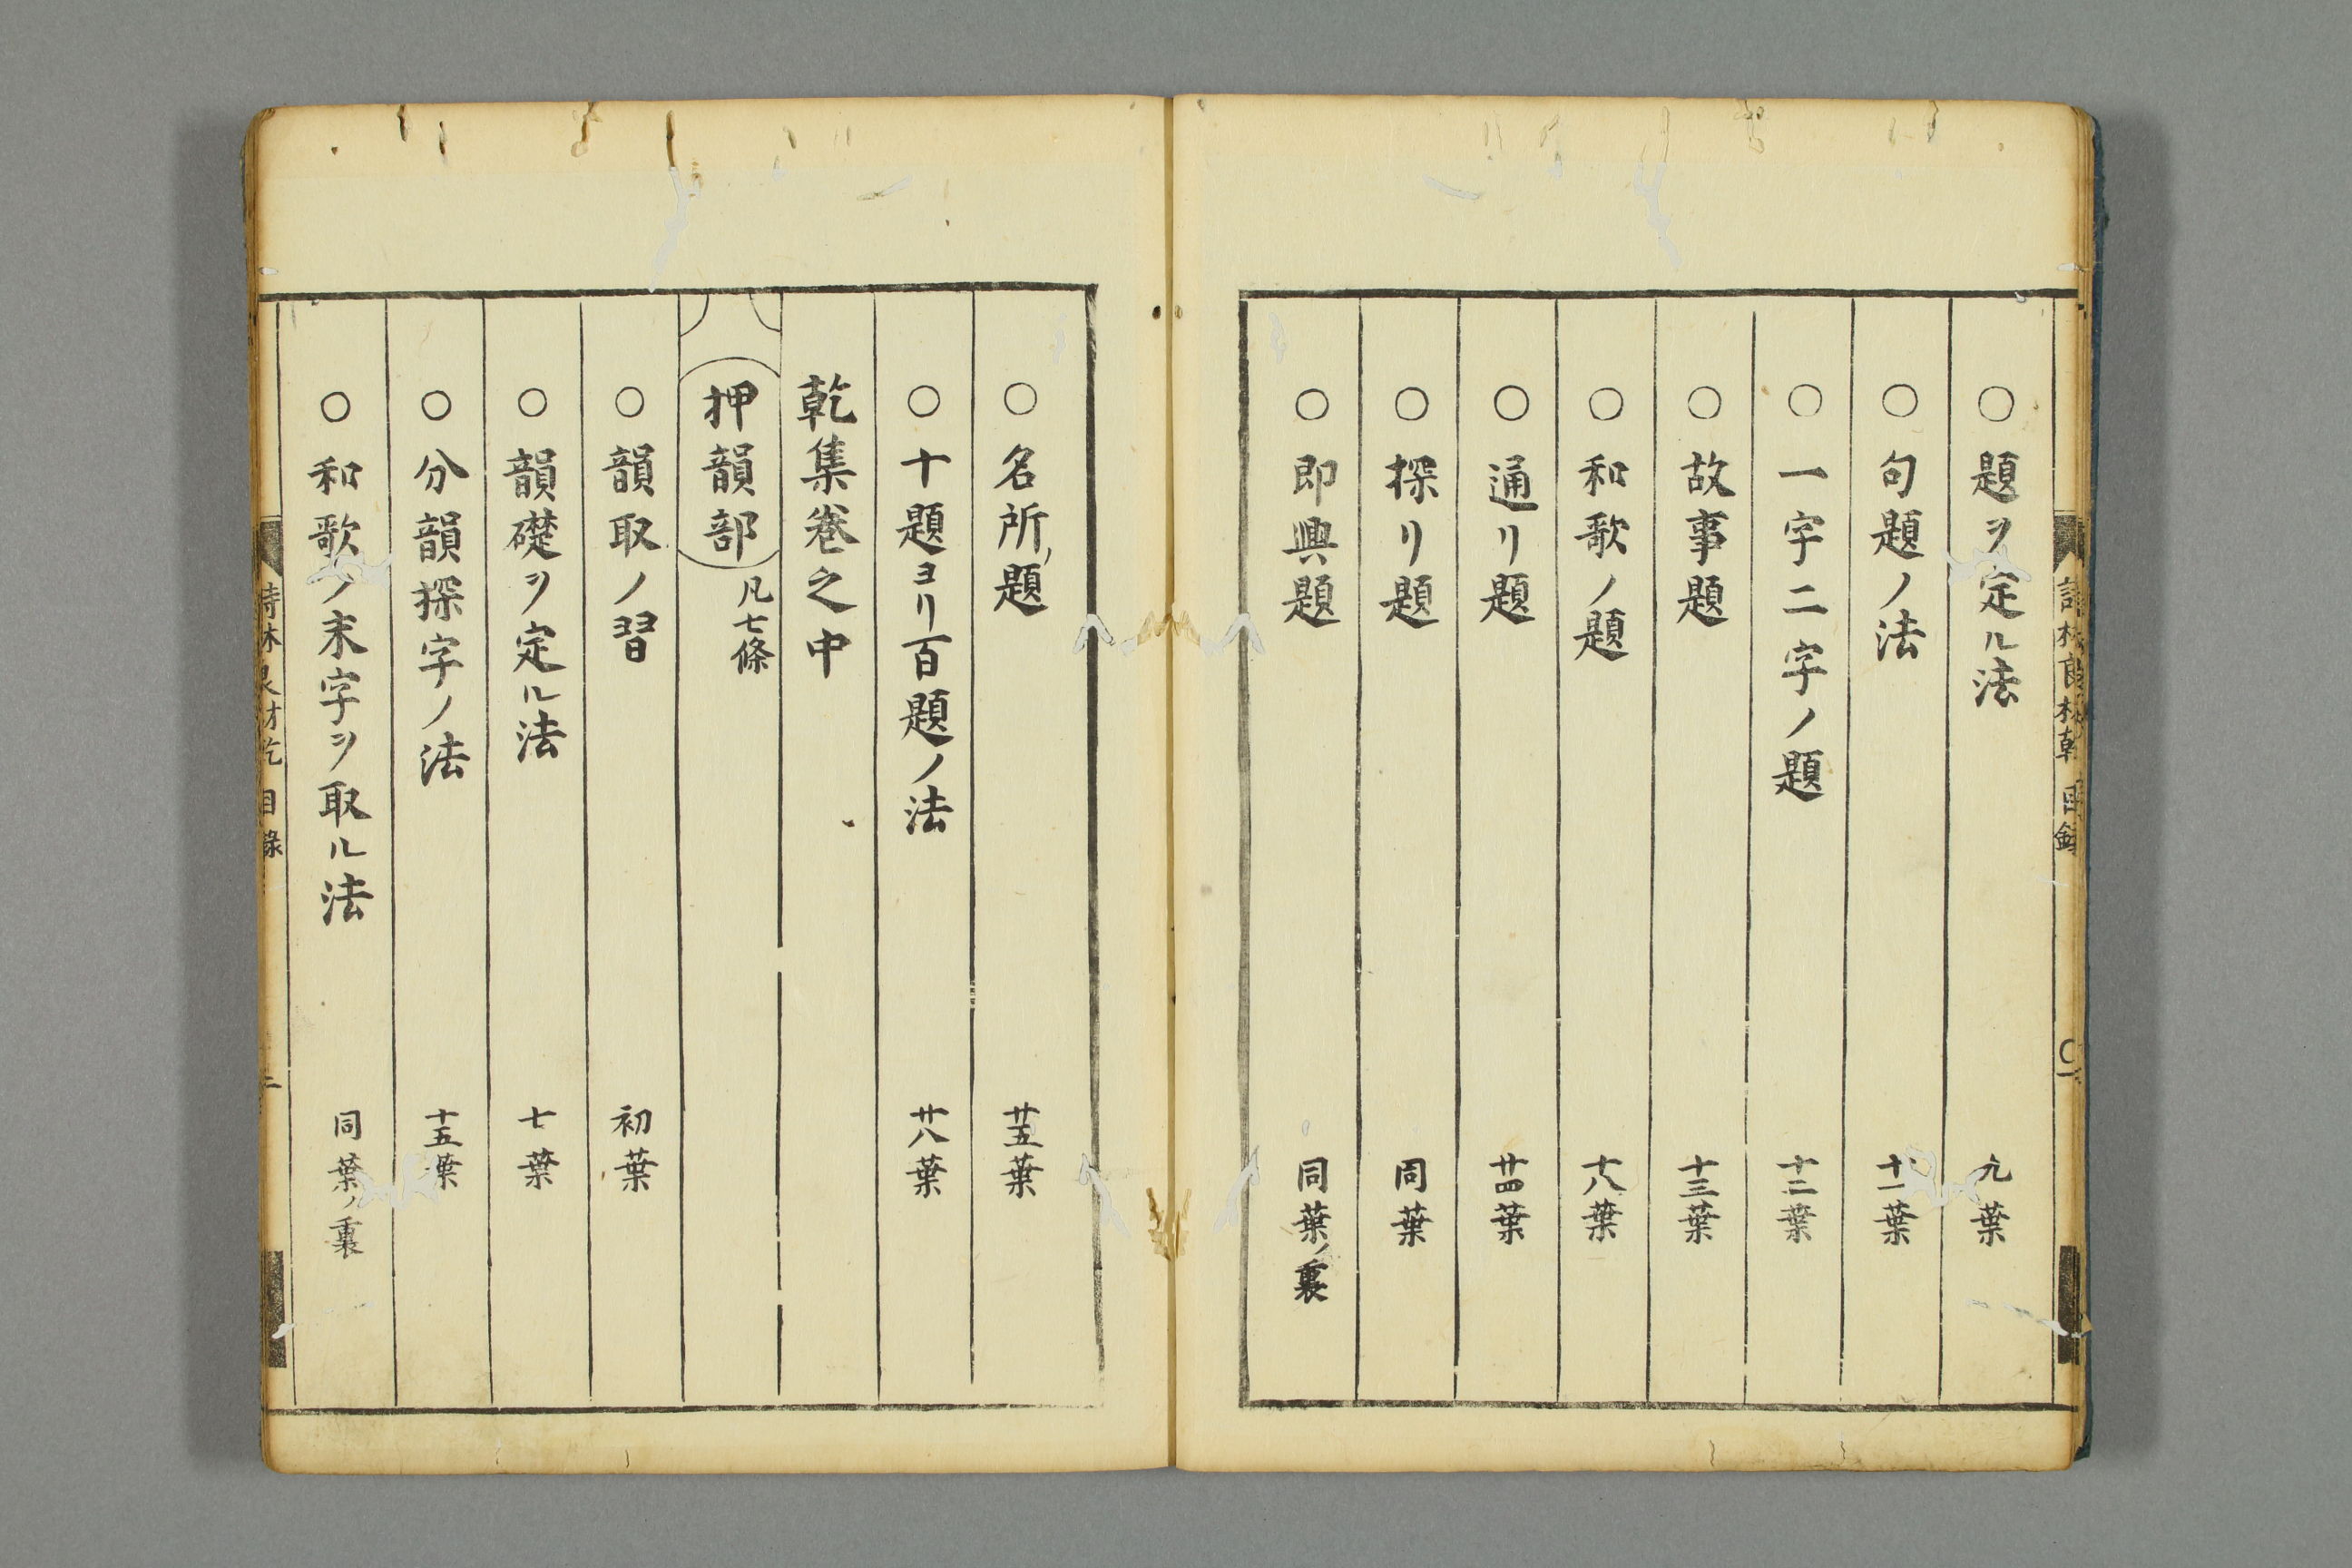 ○題ヲ定ル法 九葉
○句題ノ法 十一葉
○一字二字ノ題 十二葉
○故事題 十三葉
○和歌ノ題 十八葉
○通リ題 廿四葉
○探リ題 同葉
○即興題 同葉ノ裏
○名所ノ題 廿五葉
○十題ヨリ百題ノ法 廿八葉
乾集巻之中
押韻部 凡七條
○韻取ノ習 初葉
○韻礎ヲ定ル法 七葉
○分韻探字ノ法 十五葉
○和歌ノ末字ヲ取ル法 同葉ノ裏
詩林良材乾 目錄 二